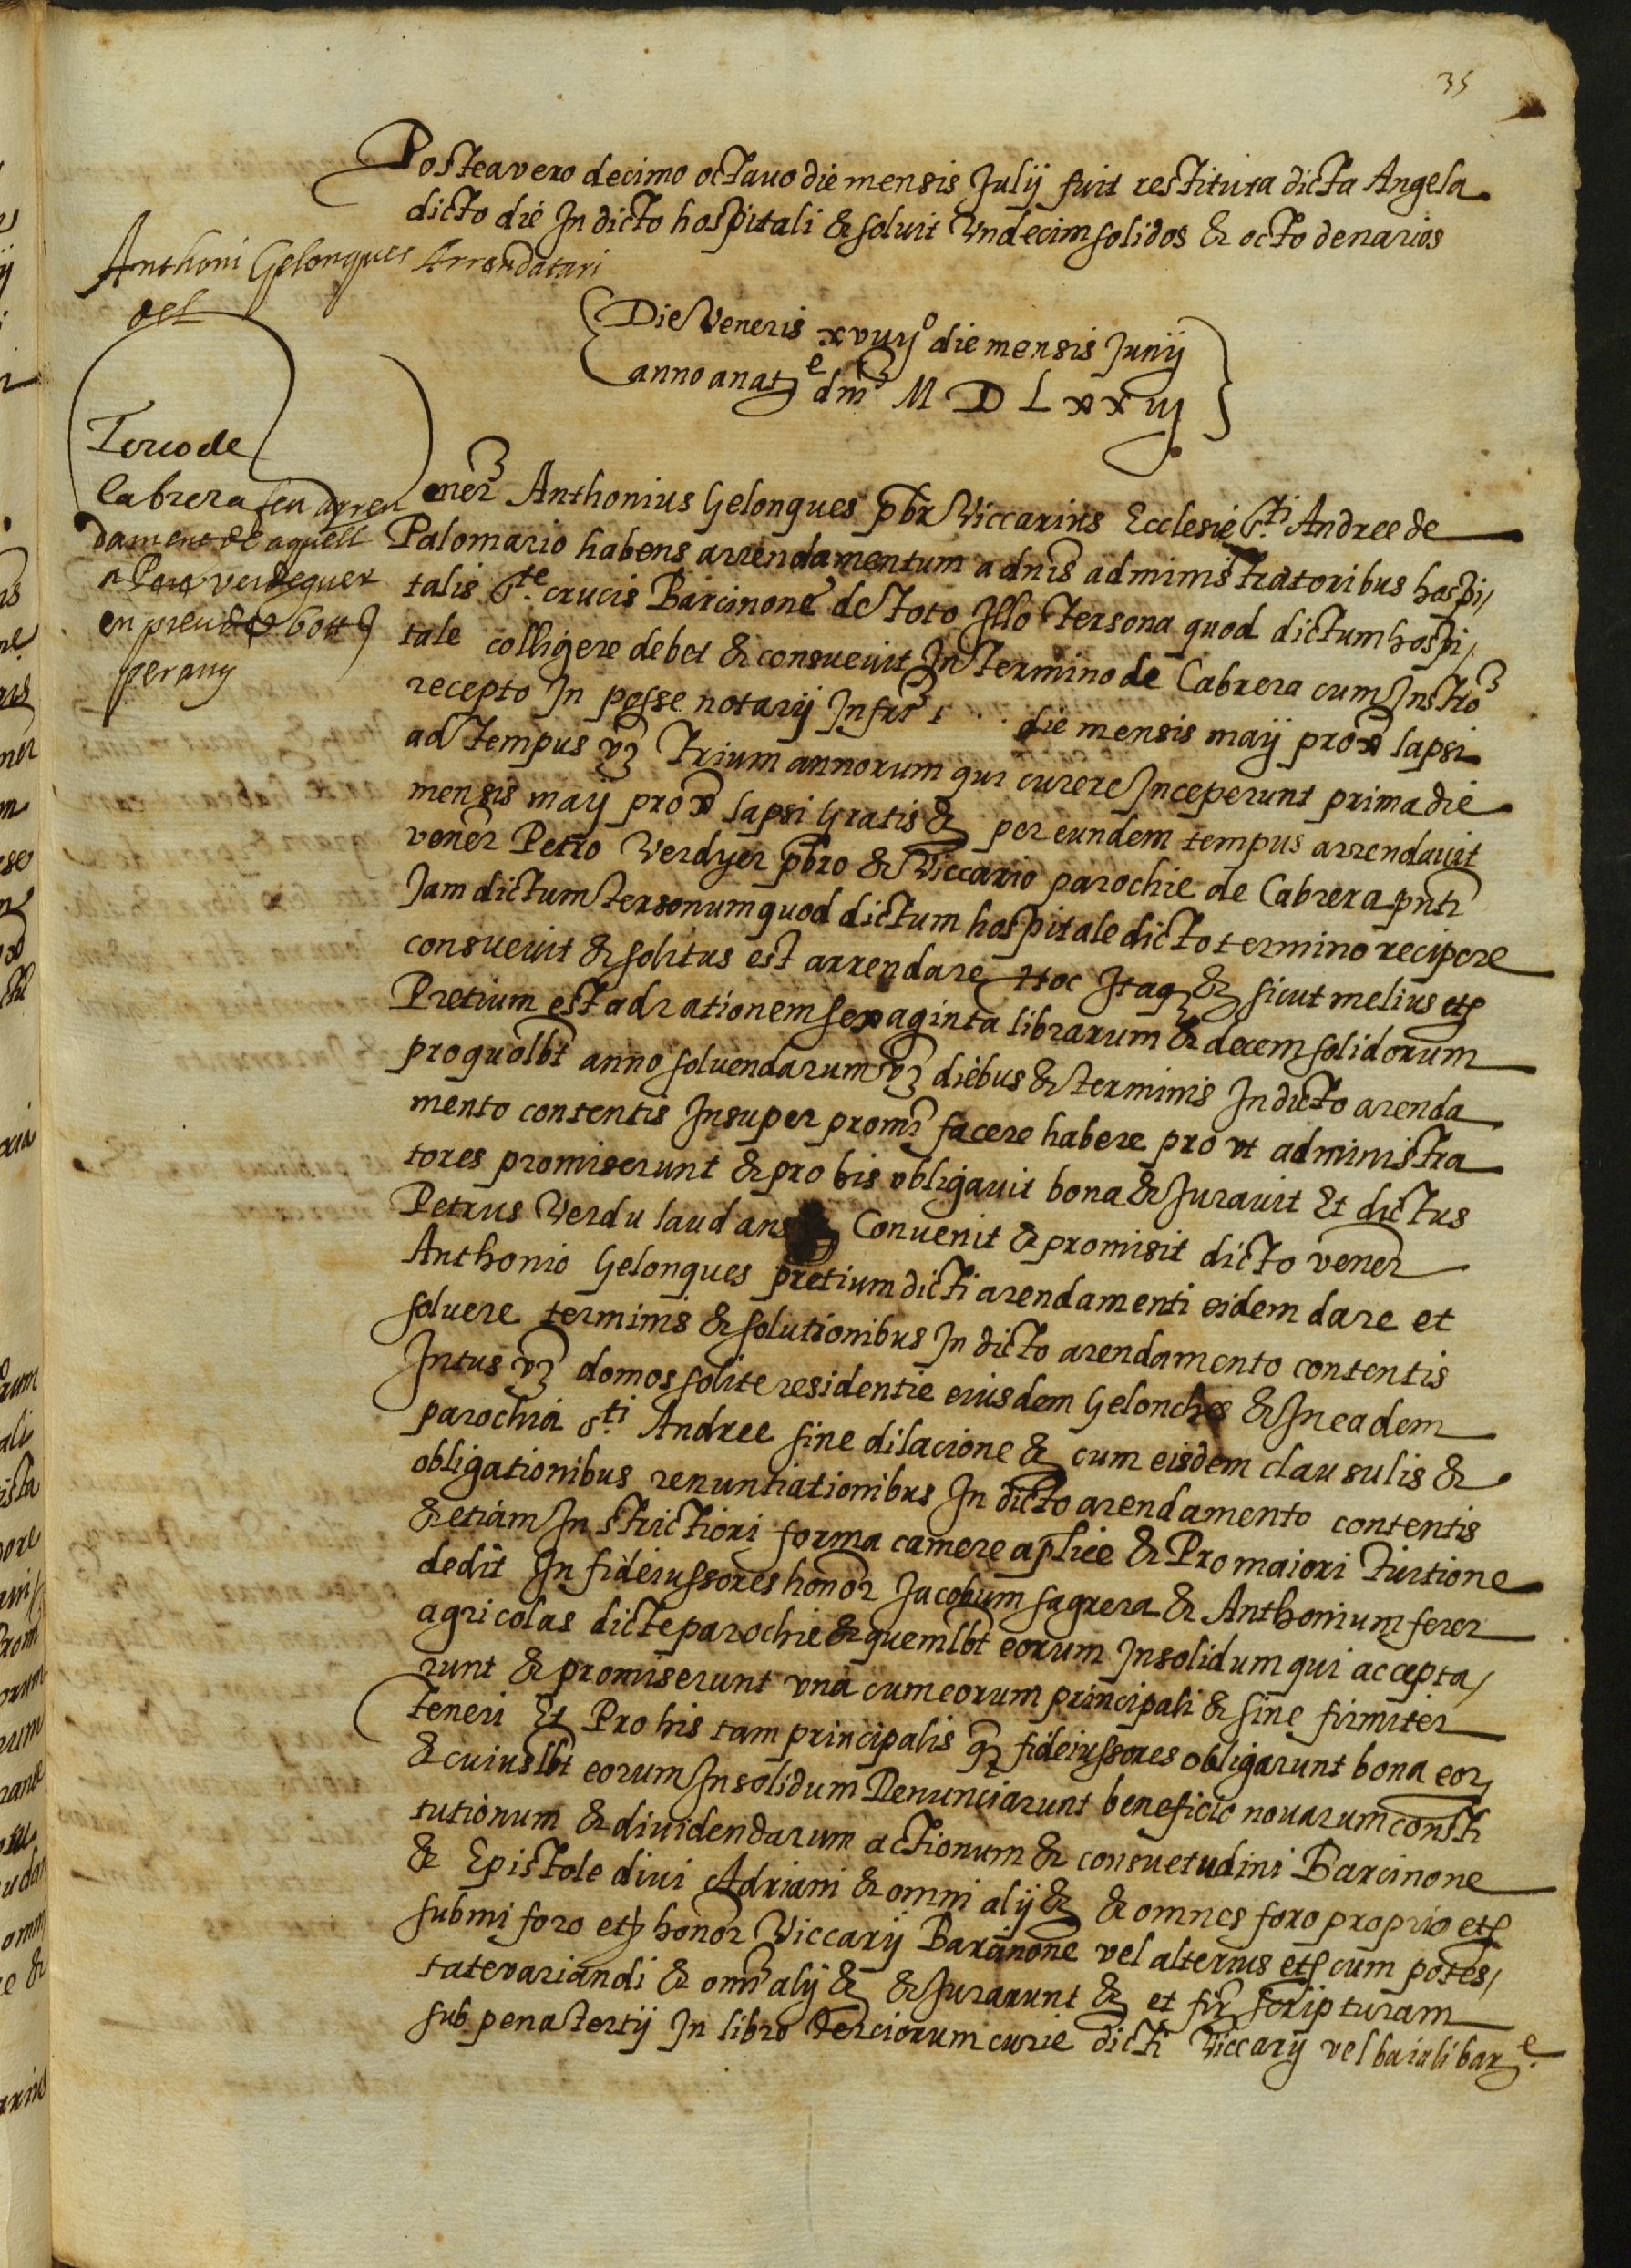 35
Postea vero decimo octauo die mensis Julij fuit restituta dicta Angela
dicto die In dicto hospitali & soluit Vndecim solidos & octo denarios
Anthoni Gelonques Arrendatari
del
Terçode
Cabrera feu arren
dament de aquell
a Pere verdeguer
en preu de 60 ₶ 10 s
per any
Die Veneris xviiijº die mensis Junij
anno a natᵉ dni M D L xx iij
ener Anthonius Gelonques pbr Viccarius Ecclesie Sti Andree de
Palomario habens arrendamentum a dnis administratoribus hospi/
talis Ste crucis Barcinone de toto Illo Tersona quod dictum hospi/
tale colligere debet & consueuit In termino de Cabrera cum Instro
recepto In posse notarij Infrr . . . die mensis maij prox lapsi
ad tempus vz Trium annorum qui curere Inceperunt prima die
mensis maij prox lapsi Gratis & per eundem tempus arrendauit
vener Petro Verdyer pbro & Viccario parochie de Cabrera pnti
Jam dictum tersonum quod dictum hospitale dicto termino recipere
consueuit & solitus est arrendare Hoc Itaq & sicut melius etc
Pretium est ad rationem sexaginta librarum & decem solidorum
pro quolbt anno soluendarum vz diebus & terminis In dicto arenda
mento contentis Insuper promi facere habere pro vt administra
tores promiserunt & pro his obligauit bona & Jurauit Et dictus
Petrus Verdu laudans & Conuenit & promisit dicto vener
Anthonio Gelonques pretium dicti arendamenti eidem dare et
soluere terminis & solutionibus In dicto arendamento contentis
Intus vz domos solite residentie eiusdem Gelonches & In eadem
parochia sti Andree sine dilacione & cum eisdem clausulis &
obligationibus renuntiationibus In dicto arendamento contentis
& etiam In strictiori forma camere aplice & Pro maiori tuitione
dedit In fideiussores honor Jacobum sagrera & Anthonium ferer
agricolas dicte parochie & quemlbt eorum Insolidum qui accepta/
runt & promiserunt vna cum eorum principali & sine firmiter
teneri Et Pro his tam principalis q fideiussores obligarunt bona eor
& cuiuslbt eorum Insolidum Renunciarunt beneficio nouarum consti
tutionum & diuidendarum actionum & consuetudini Barcinone
& Epistole diui Adriani & omni alij & & omnes foro proprio etc
submi foro etc honor Viccarij Barcinone vel alterius etc cum potes/
tate variandi & omi alij & & Jurarunt & et fir scripturam
sub pena tertij In libro terciorum curie dicti Viccarij vel baiuli barᵉ.